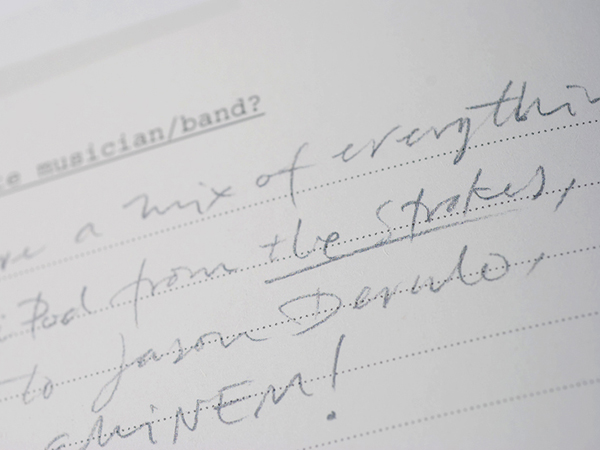 te musician/band?
ve a mix of everythin
iPod from the Strokes,
to Jason Derulo,
EMiNEM!